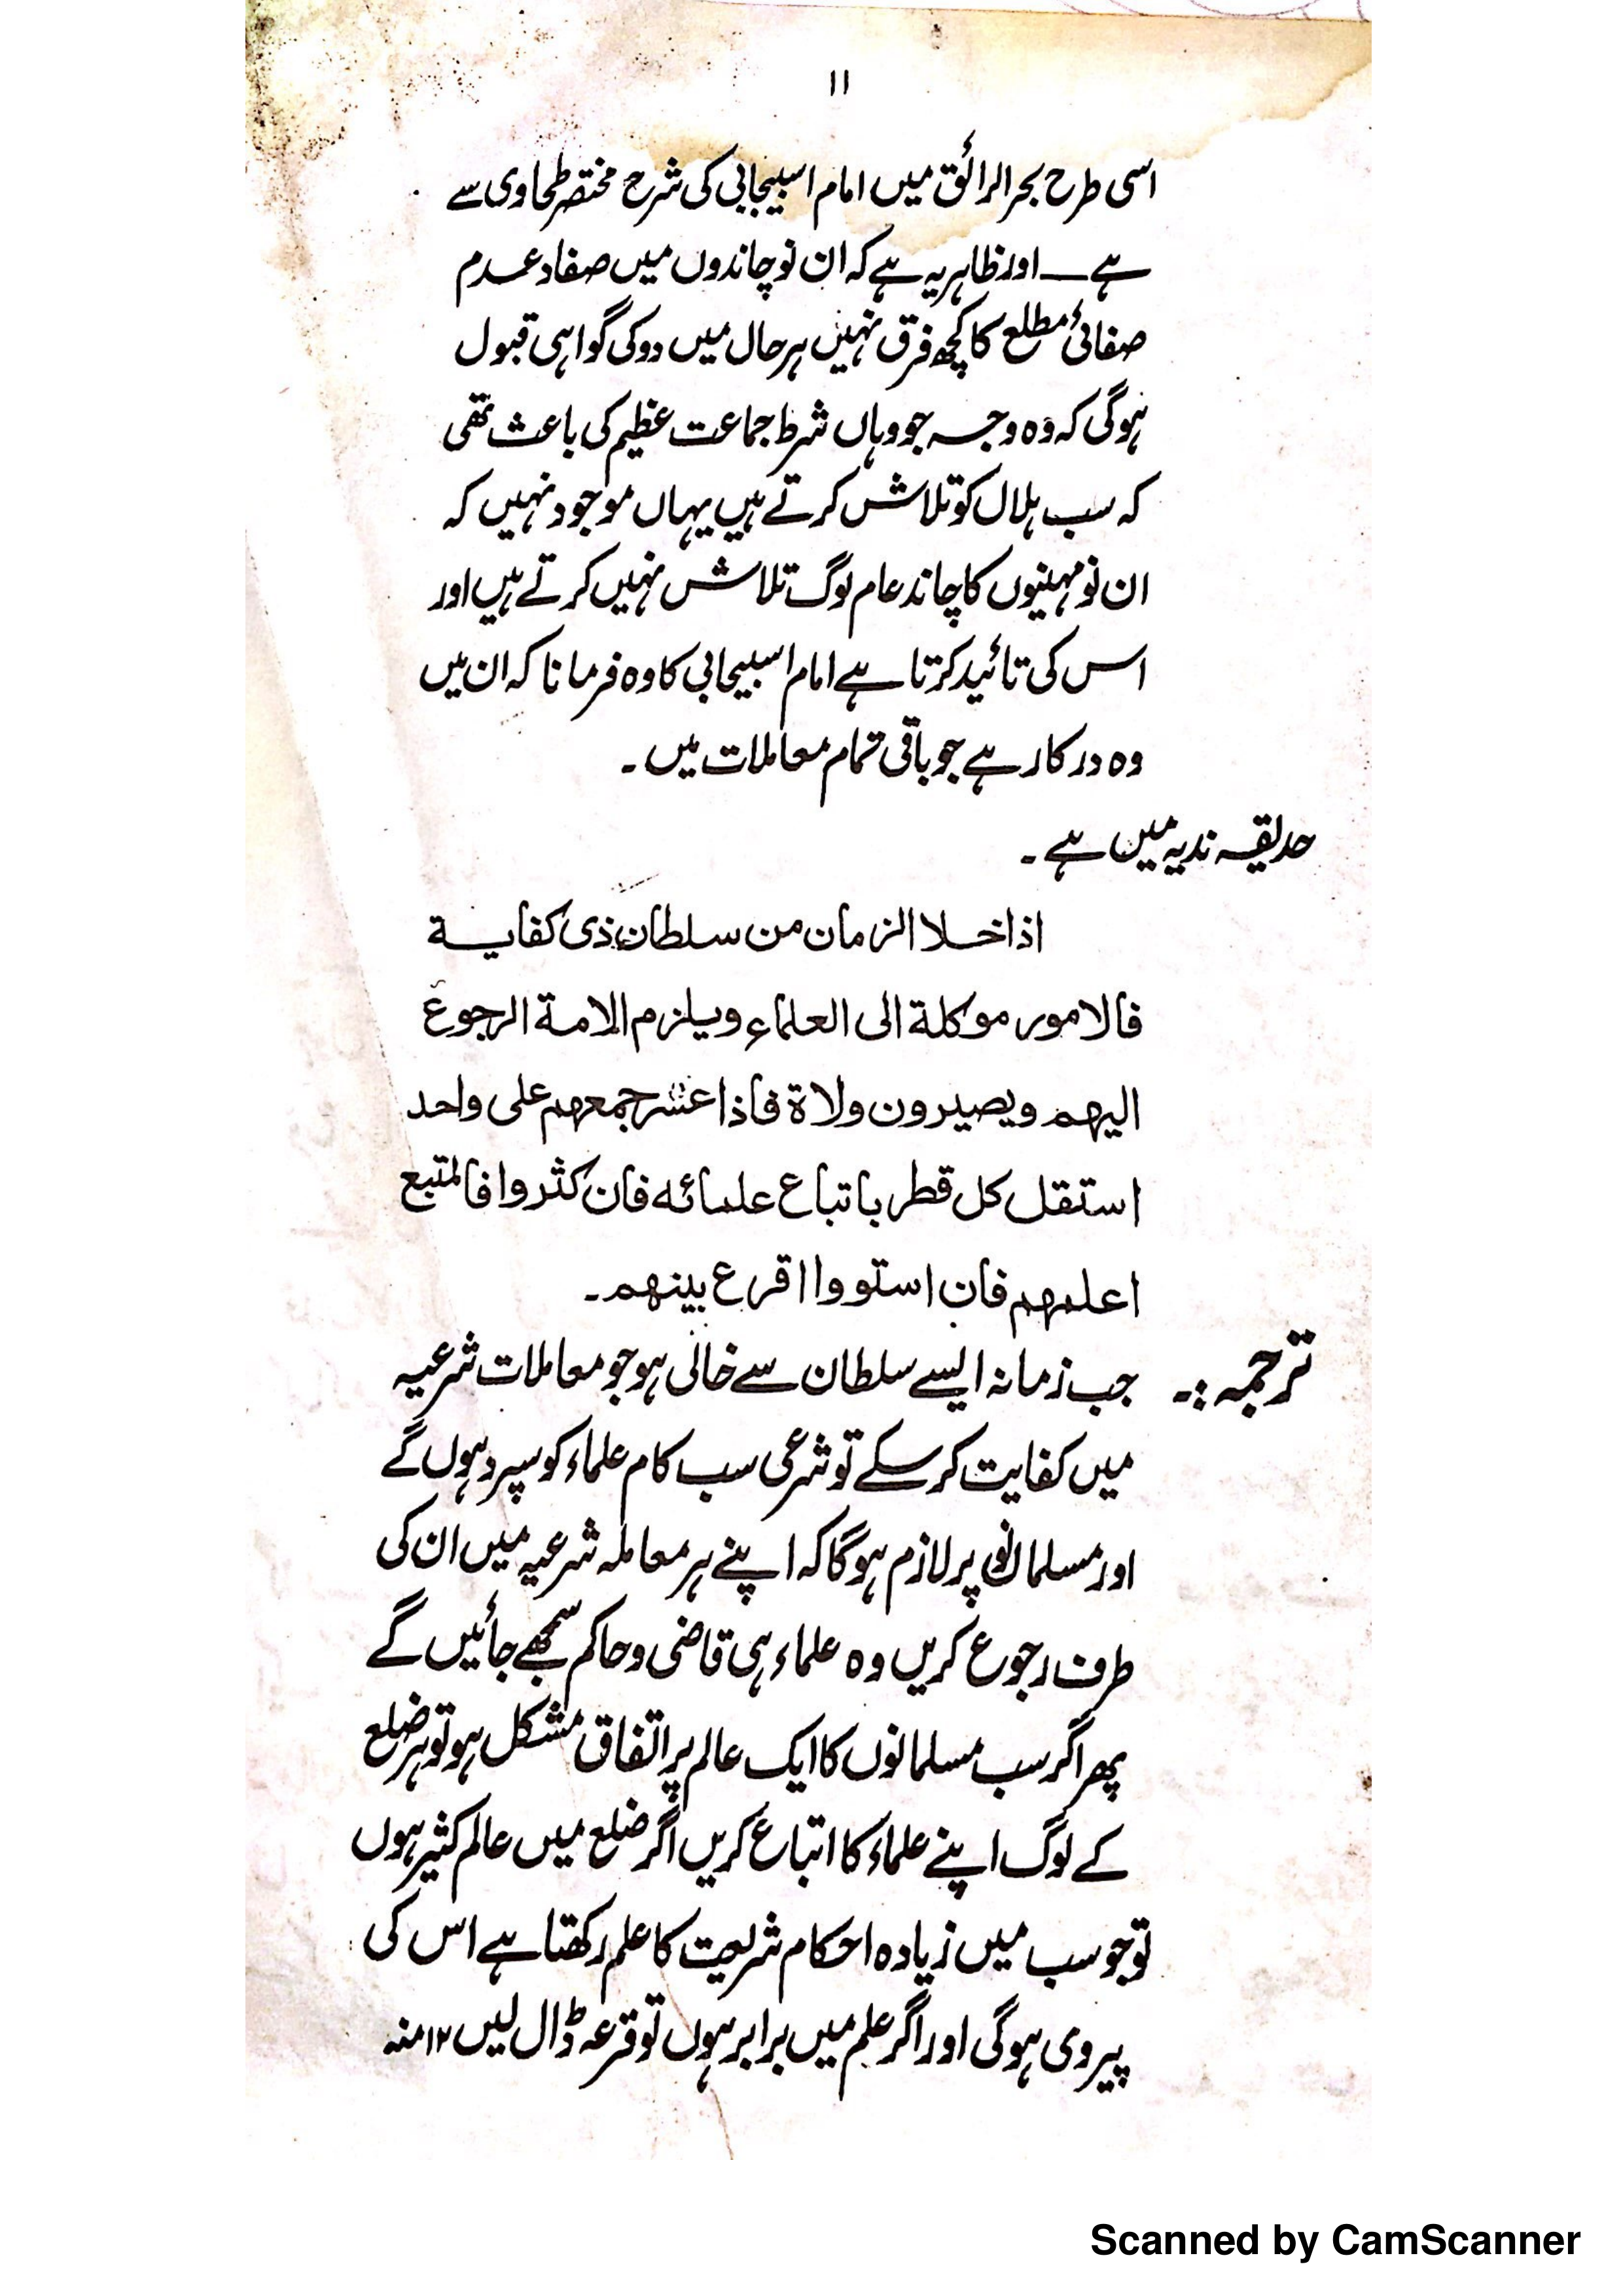 ۱۱
اسی طرح بحر الرائق میں امام اسبیجابی کی شرح مختصر طحاوی سے
ہے ــ اور ظاہر یہ ہے کہ ان نو چاندوں میں صفاد عدم
صفائیٔ مطلع کا کچھ فرق نہیں ہر حال میں دو کی گواہی قبول
ہوگی کہ وہ وجہ جو وہاں شرط جماعت عظیم کی باعث تھی
کہ سب ہلال کو تلاش کرتے ہیں یہاں موجود نہیں کہ
ان نو مہنیوں کا چاند عام لوگ تلاش نہیں کرتے ہیں اور
اس کی تائید کرتا ہے امام اسبیجابی کا وہ فرمانا کہ ان میں
وہ درکار ہے جو باقی تمام معاملات میں ۔
حدیقہ ندیہ میں ہے ۔
اذا خلا الزمان من سلطان ذی کفایة
فالامور موکلة الی العلماء ویلزم الامة الرجوع
الیهم ویصیرون ولاة فاذا عسر جمعهم علی واحد
استقل کل قطر باتباع علمائه فان کثروا فالمتبع
اعلمهم فان استووا اقرع بینهم ۔
ترجمہ :۔ جب زمانہ ایسے سلطان سے خالی ہو جو معاملات شرعیہ
میں کفایت کر سکے تو شرعی سب کام علماء کو سپرد ہوں گے
اور مسلمانوں پر لازم ہوگا کہ اپنے ہر معاملہ شرعیہ میں ان کی
طرف رجوع کریں وہ علماء ہی قاضی و حاکم سمجھے جائیں گے
پھر اگر سب مسلمانوں کا ایک عالم پر اتفاق مشکل ہو تو ہر ضلع
کے لوگ اپنے علماء کا اتباع کریں اگر ضلع میں عالم کثیر ہوں
تو جو سب میں زیادہ احکام شریعت کا علم رکھتا ہے اس کی
پیروی ہوگی اور اگر علم میں برابر ہوں تو قرعہ ڈال لیں ۱۲ منہ
Scanned by CamScanner